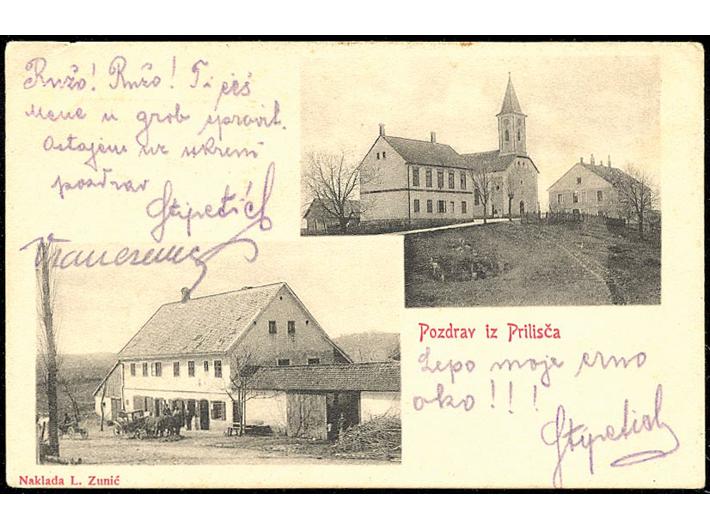 Ružo! Ružo! Ti ćeš
mene u grob spravit.
Ostajem uz iskreni
pozdrav
Stipetić
Pozdrav iz Prilišća
Lepo moje crno
oko!!!
Stipetić
Naklada L. Zunić